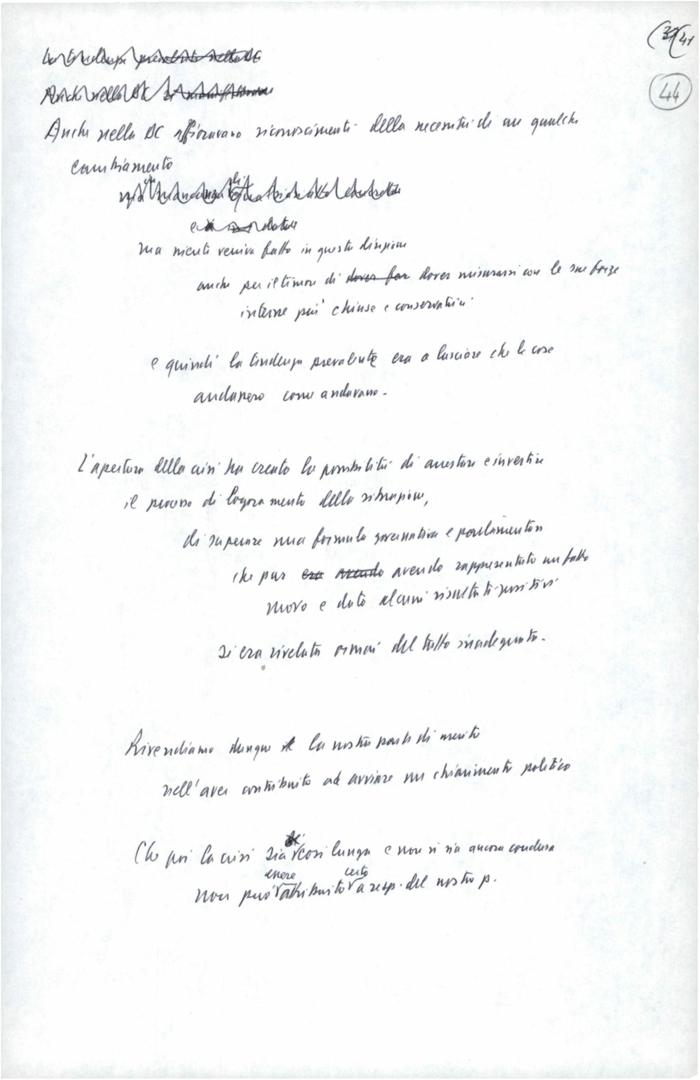 39/41
44
La tendenza prevalente nella DC
Anche nella DC
Anche nella DC affioravano riconoscimenti della necessità di un qualche
cambiamento
ma niente veniva fatto in questa direzione
anche per il timore di dover far dover misurarsi con le sue forze
interne più chiuse e conservatrici
e quindi la tendenza prevalente era a lasciare che le cose
andassero come andavano.
L'apertura della crisi ha creato la possibilità di arrestare e invertire
il processo di logoramento della situazione,
di superare una formula governativa e parlamentare
che pur era avendo avendo rappresentato un fatto
nuovo e dato alcuni risultati positivi
si era rivelata ormai del tutto inadeguata.
Rivendichiamo dunque la nostra parte di merito
nell'aver contribuito ad avviare un chiarimento politico
Che poi la crisi sia così lunga e non si sia ancora conclusa
non può essere attribuito certo a resp. del nostro p.